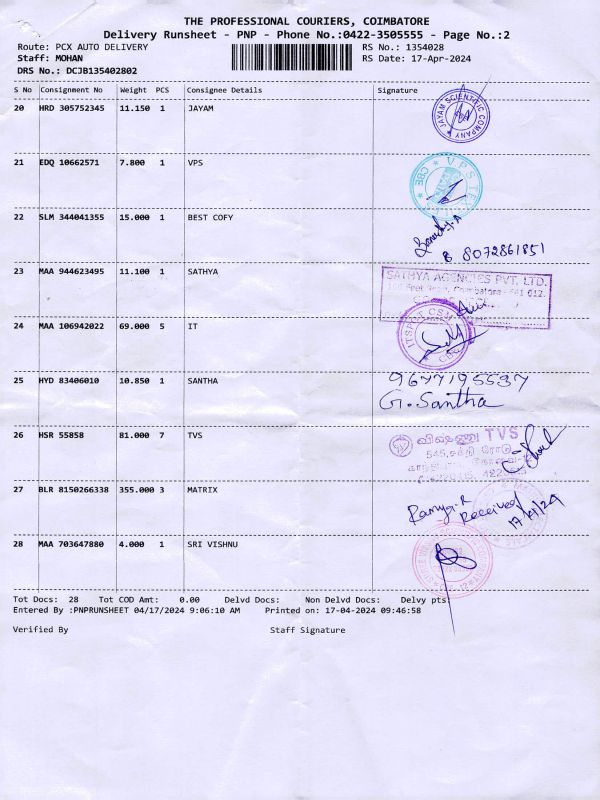 THE PROFESSIONAL COURIERS, COIMBATORE
Delivery Runsheet - PNP - Phone No.:0422-3505555 - Page No.:2
Route: PCX AUTO DELIVERY RS No.: 1354028
Staff: MOHAN RS Date: 17-Apr-2024
DRS No.: DCJB135402802
S No Consignment No Weight PCS Consignee Details Signature
20 HRD 305752345 11.150 1 JAYAM
JAYAM SCIENTIFIC COMPANY
21 EDQ 10662571 7.800 1 VPS
VPS CBE
22 SLM 344041355 15.000 1 BEST COFY
8072861851
23 MAA 944623495 11.100 1 SATHYA
SATHYA AGENCIES PVT. LTD.
Coimbatore - 641 012.
24 MAA 106942022 69.000 5 IT
25 HYD 83406010 10.850 1 SANTHA
9677195537
G. Santha
26 HSR 55858 81.000 7 TVS
TVS
27 BLR 8150266338 355.000 3 MATRIX
Ramya.R
Received
17/4/24
28 MAA 703647880 4.000 1 SRI VISHNU
Tot Docs: 28 Tot COD Amt: 0.00 Delvd Docs: Non Delvd Docs: Delvy pts
Entered By :PNPRUNSHEET 04/17/2024 9:06:10 AM Printed on: 17-04-2024 09:46:58
Verified By Staff Signature